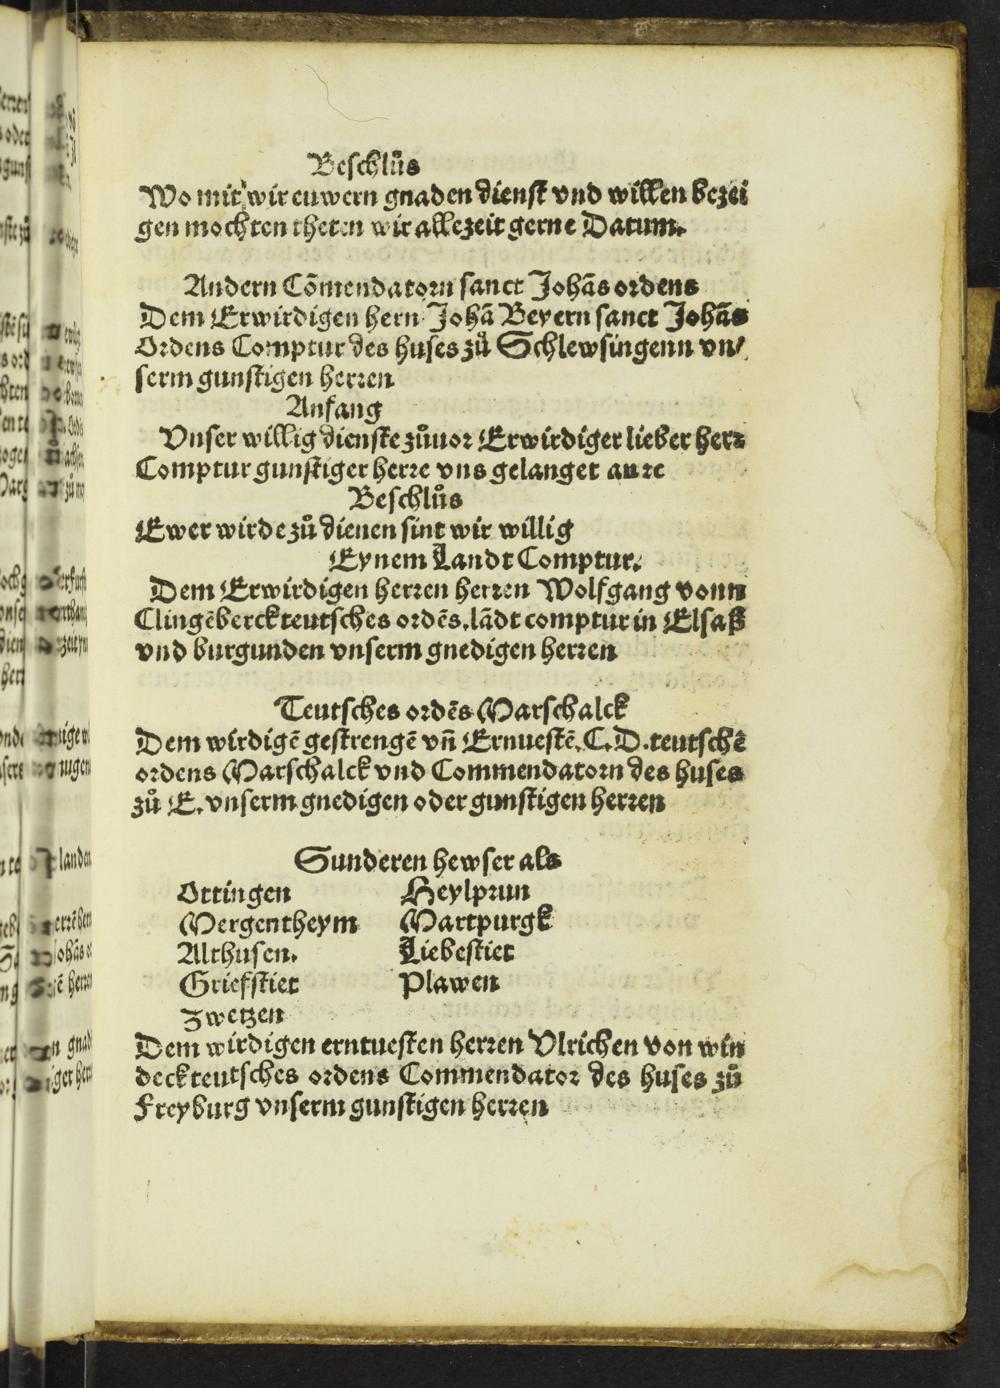 Beschlůs
Wo mit wir euwern gnaden dienst vnd willen bezei
gen mochten theten wir allezeit gerne Datum.
Andern Cōmendatorn sanct Johās ordens
Dem Erwirdigen hern Johā Beyern sanct Johās
Ordens Comptur des huses zů Schlewsingenn vn/
serm gunstigen herren
Anfang
Vnser willig dienste zůuor Erwirdiger lieber herr
Comptur gunstiger herre vns gelanget an ꝛc
Beschlůs
Ewer wirde zů dienen sint wir willig
Eynem Landt Comptur.
Dem Erwirdigen herren herren Wolfgang vonn
Clingēberck teutsches ordēs, lādt comptur in Elsaß
vnd burgunden vnserm gnedigen herren
Teutsches ordēs Marschalck
Dem wirdigē gestrengē vn̄ Ernuestē. C. D. teutschē
ordens Marschalck vnd Commendatorn des huses
zů E. vnserm gnedigen oder gunstigen herren
Sunderen hewser als
Ottingen Heylprun
Mergentheym Martpurgk
Althusen. Liebestiet
Griefstiet Plawen
Zwetzen
Dem wirdigen erntuesten herren Vlrichen von win
deck teutsches ordens Commendator des huses zů
Freyburg vnserm gunstigen herren